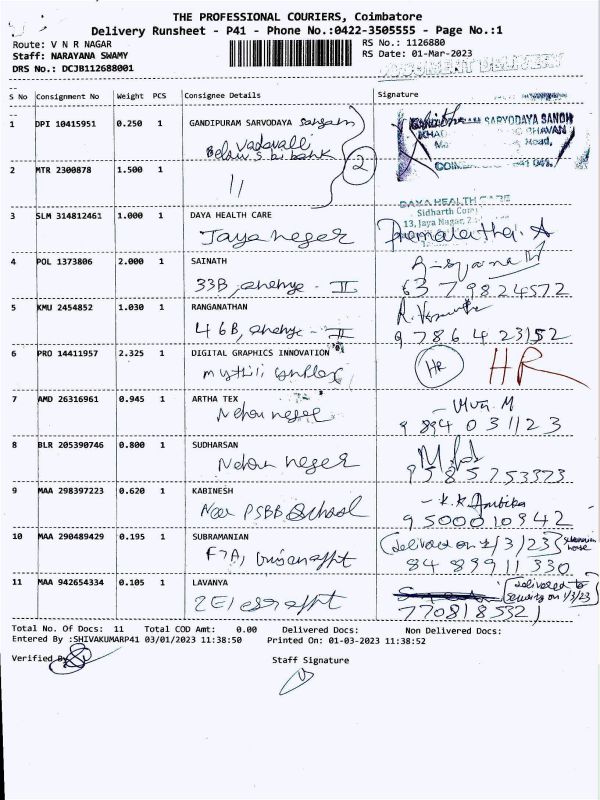 THE PROFESSIONAL COURIERS, Coimbatore
Delivery Runsheet - P41 - Phone No.:0422-3505555 - Page No.:1
Route: V N R NAGAR RS No.: 1126880
Staff: NARAYANA SWAMY RS Date: 01-Mar-2023
DRS No.: DCJB112688001
DOCUMENT DELIVERY
S No Consignment No Weight PCS Consignee Details Signature
1 DPI 10415951 0.250 1 GANDIPURAM SARVODAYA Sangam
SARVODAYA SANGH
BHAVAN
Road,
Vadavalli
Below S.B. bank
2
2 MTR 2300878 1.500 1
11
DAYA HEALTH CARE
3 SLM 314812461 1.000 1 DAYA HEALTH CARE
13, Jaya Nagar,
Jaya neger Premalatha. A
4 POL 1373806 2.000 1 SAINATH
33B, II 6379824572
5 KMU 2454852 1.030 1 RANGANATHAN
46B, II 9786423152
6 PRO 14411957 2.325 1 DIGITAL GRAPHICS INNOVATION
mythili complex HR HR
7 AMD 26316961 0.945 1 ARTHA TEX
Nehru neger 9894031123
8 BLR 205390746 0.800 1 SUDHARSAN
Nehru neger 9585753373
9 MAA 298397223 0.620 1 KABINESH
Near PSBB School - K.K. Ambika
9500010942
10 MAA 290489429 0.195 1 SUBRAMANIAN
delivered on 1/3/23
F7A, 8489911330
11 MAA 942654334 0.105 1 LAVANYA
2E1 delivered to
security on 1/3/23
7708185321
Total No. Of Docs: 11 Total COD Amt: 0.00 Delivered Docs: Non Delivered Docs:
Entered By :SHIVAKUMARP41 03/01/2023 11:38:50 Printed On: 01-03-2023 11:38:52
Verified By
Staff Signature